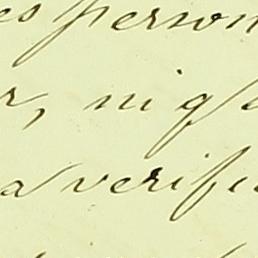 es person
r, ni gl
a verifi